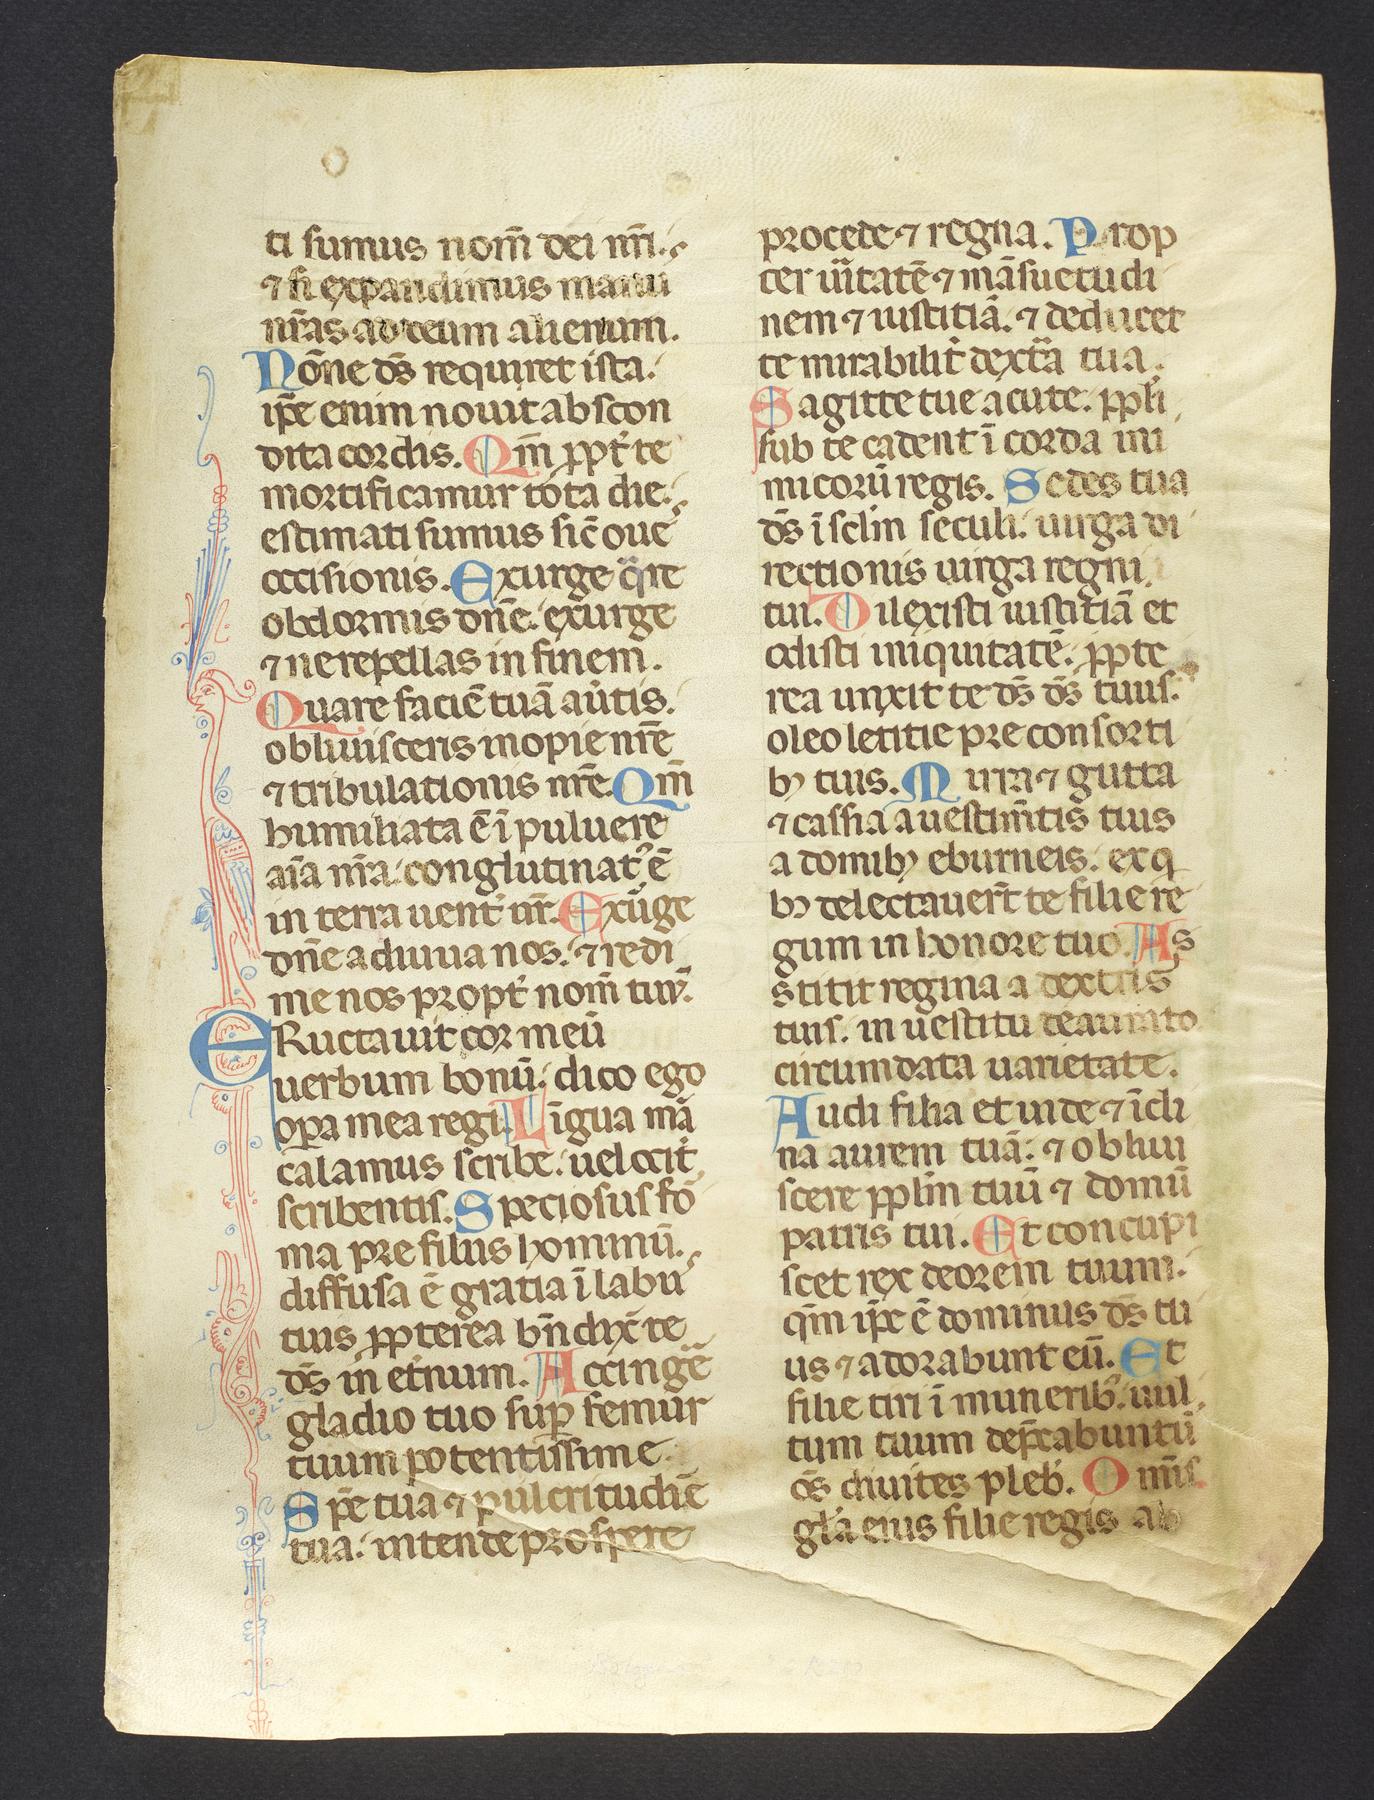 ti sumus nom̄ dei nr̄i.
⁊ si expandimus manū
nr̄as ad deum alienum.
Nōne ds̄ requiret ista.
ip̄e enim nouit abscon
dita cordis. Qm̄ ꝓpt̄ te
mortificamur tota die.
estimati sumus sic̄ oue
occisionis. Exurge q̄re
obdormis dn̄e. exurge
⁊ ne repellas in finem.
Quare faciē tuā au̾tis.
obliuisceris inopie nr̄e
⁊ tribulationis nr̄e. Qm̄
humiliata ē ī puluere
aīa nr̄a. conglutinatꝰ ē
in terra uent̾ nr̄. Exurge
dn̄e adiuua nos. ⁊ redi
me nos propt̾ nom̄ tuū.
ERuctauit cor meū
uerbum bonū. dico ego
oꝑa mea regi. Līgua mā
calamus scribe. uelocit̾
scribentis. Speciosus fo
ma pre filiis hominū.
diffusa ē gratia ī labii
tuis ꝓpterea bn̄dix̄ te
ds̄ in et̾num. Accingē
gladio tuo suꝑ femur
tuum potentissime
Spē tua ⁊ pulcritudiē
tua. intende prospere
procede ⁊ regna. Prop
ter uītatē ⁊ māsuetudi
nem ⁊ iustitiā. ⁊ deducet
te mirabilit̾ dext̄a tua.
Sagitte tue acute. ppl̄i
sub te cadent ī corda ini
micorū regis. Sedes tua
ds̄ ī scl̄m seculi. uirga di
rectionis uirga regni
tui. Dilexisti iustitiā et
odisti iniquitatē. ꝓpte
rea unxit te ds̄ ds̄ tuus.
oleo letitie pre consorti
bꝫ tuis. Mirra ⁊ gutta
⁊ cassia a uestim̄tis tuis
a domibꝫ eburneis. ex q
bꝫ delectauer̄t te filie re
gum in honore tuo. As
stitit regina a dextris
tuis. in uestitu deaurato
circumdata uarietate.
Audi filia et uide ⁊ īcli
na aurem tuā. ⁊ obliui
scere ppl̄m tuū ⁊ domū
patris tui. Et concupi
scet rex decorem tuum.
qm̄ ip̄e ē dominus ds̄ tu
us ⁊ adorabunt eū. Et
filie tiri ī muneribꝰ. uul
tum tuum dep̄cabuntū
oēs diuites pleb̄. Omīs
gl̄a eius filie regis ab